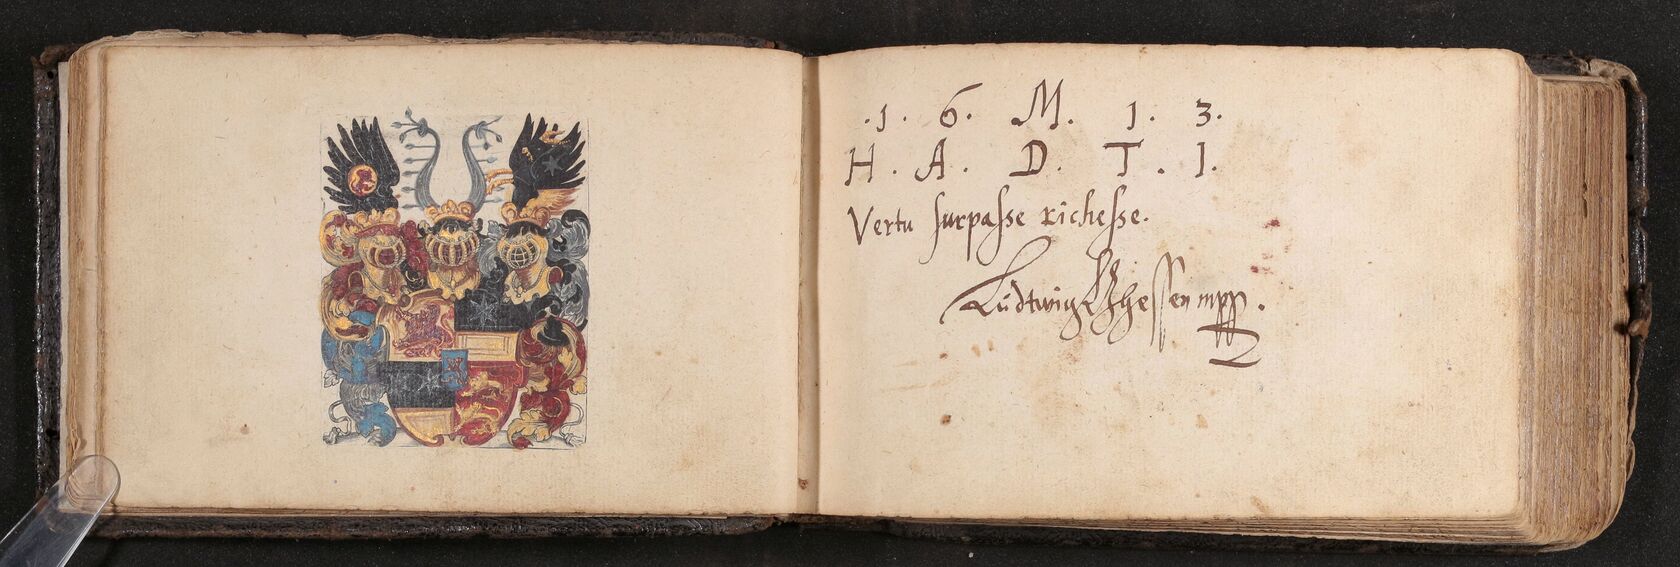 .1. 6. M. 1. 3.
H. A. D. T. I.
Vertu surpasse richesse.
Ludwig L Z hessen mpp.